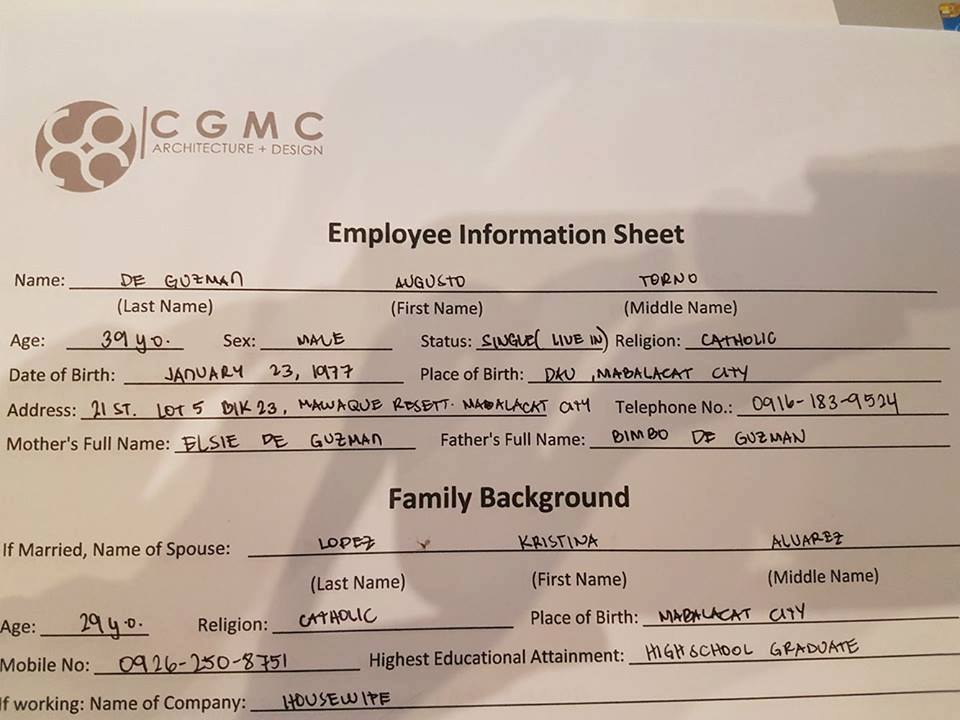 CGMC
ARCHITECTURE + DESIGN
Employee Information Sheet
Name: DE GUZMAN AUGUSTO TORNO
(Last Name) (First Name) (Middle Name)
Age: 39 y.o. Sex: MALE Status: SINGLE( LIVE IN) Religion: CATHOLIC
Date of Birth: JANUARY 23, 1977 Place of Birth: DAU, MABALACAT CITY
Address: 21 ST. LOT 5 BLK 23, MAWAQUE RESETT. MABALACAT CITY Telephone No.: 0916-183-9524
Mother's Full Name: ELSIE DE GUZMAN Father's Full Name: BIMBO DE GUZMAN
Family Background
If Married, Name of Spouse: LOPEZ KRISTINA ALVAREZ
(Last Name) (First Name) (Middle Name)
Age: 29 y.o. Religion: CATHOLIC Place of Birth: MABALACAT CITY
Mobile No: 0926-250-8751 Highest Educational Attainment: HIGH SCHOOL GRADUATE
If working: Name of Company: HOUSEWIFE